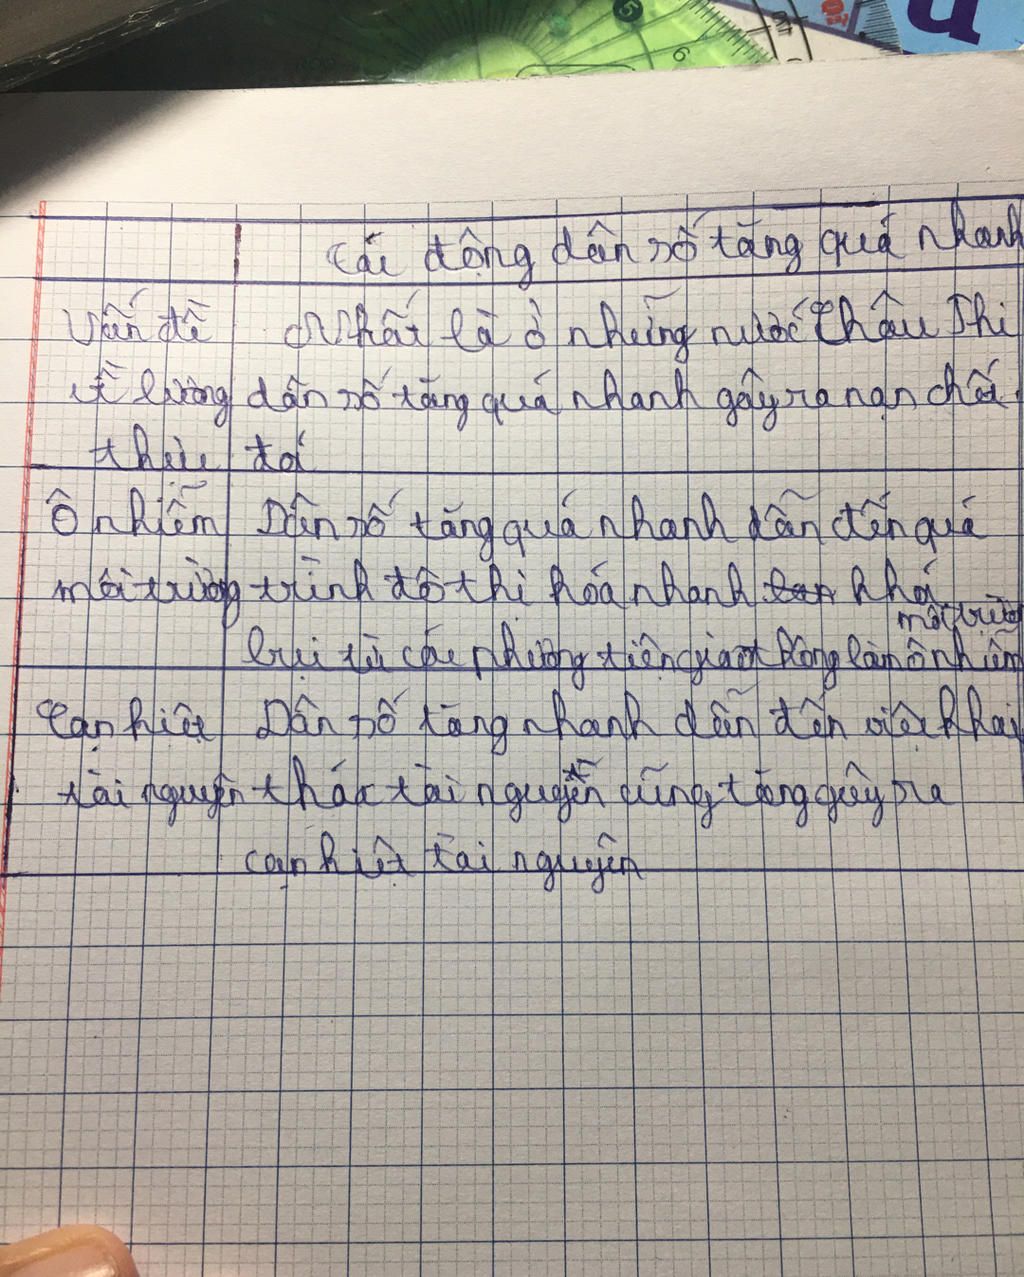 Các động dân số tăng quá nhanh
Vấn đề Nhất là ở những nước Châu Phi
về lương dân số tăng quá nhanh gây ra nạn chết
thực đói
Ô nhiễm Dân số tăng quá nhanh dẫn đến quá
môi trường trình đô thị hóa nhanh khói
môi trường
bụi từ các phương tiện giao thông làm ô nhiễm
Cạn kiệt Dân số tăng nhanh dẫn đến việc khai
tài nguyên thác tài nguyên cũng tăng gây ra
cạn kiệt tài nguyên